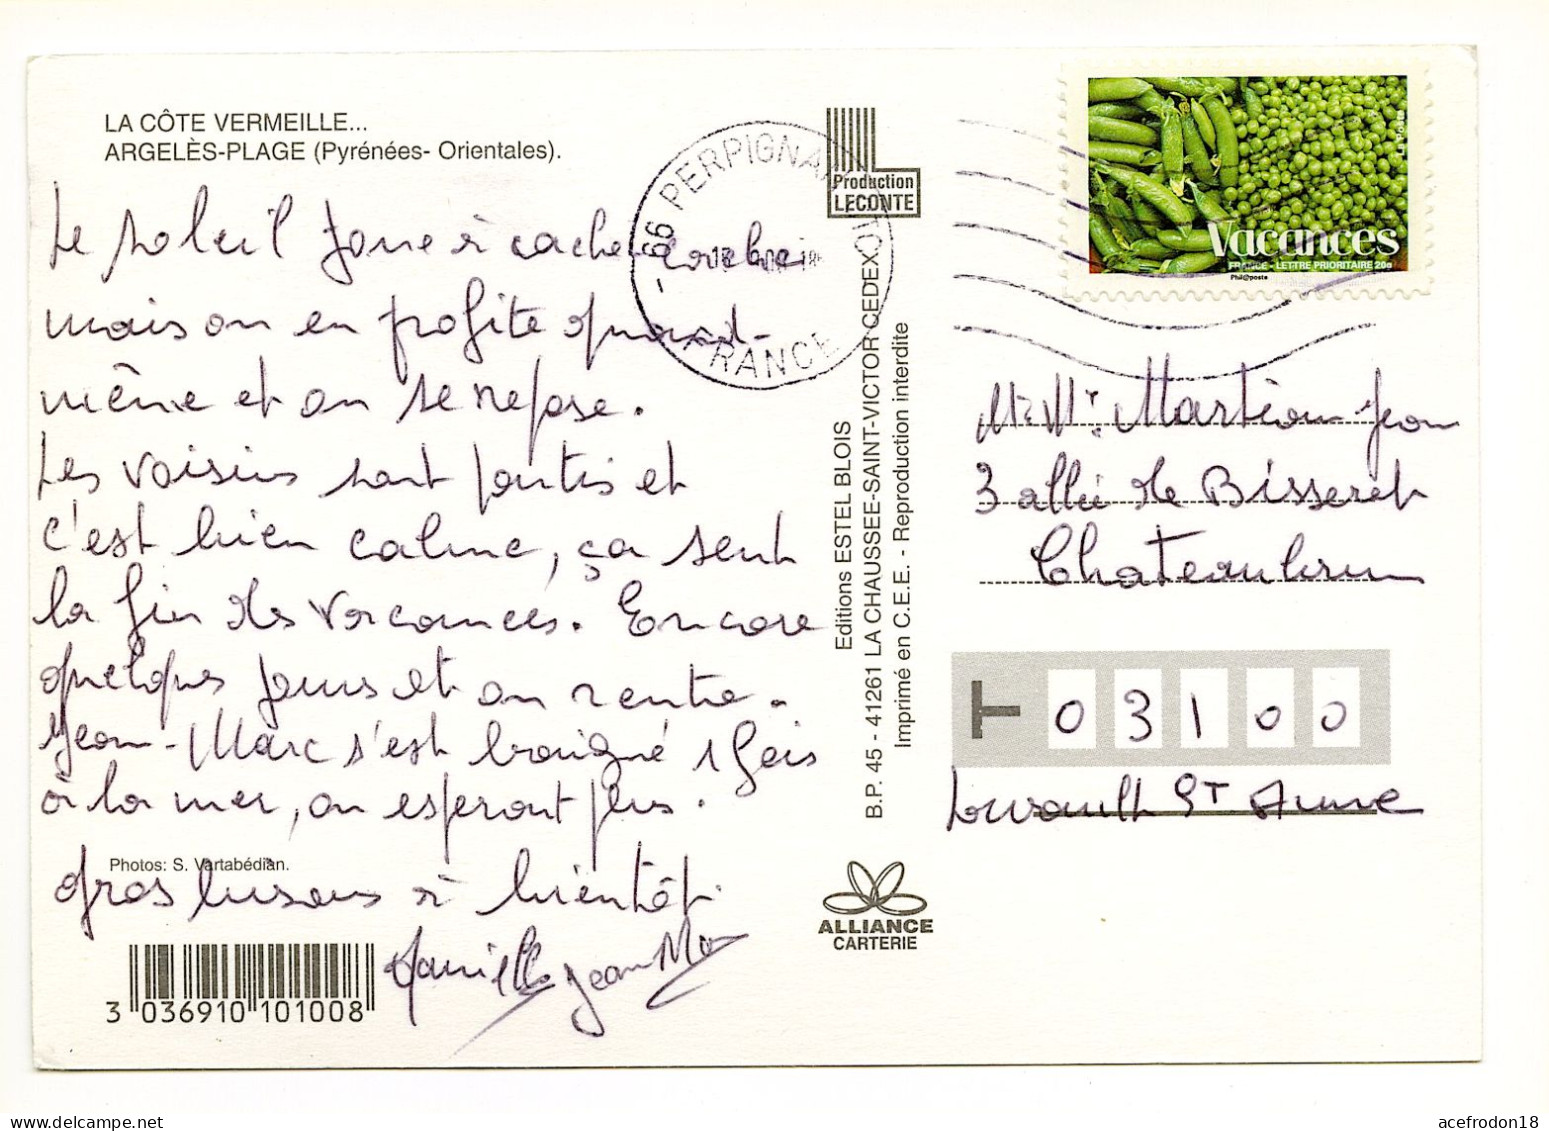 LA CÔTE VERMEILLE...
ARGELÈS-PLAGE (Pyrénées- Orientales).
Le soleil joue à cache cache
mais on en profite quand-
même et on se repose.
Les voisins sont partis et
c'est bien calme, ça sent
la fin des vacances. Encore
quelques jours et on rentre.
Jean-Marc s'est baigné 1 fois
à la mer, on espérait plus.
Photos: S. Vartabédian.
Gros bisous à bientôt.
Danielle Jean Ma
3 036910 101008
66 PERPIGNAN CEDEX
FRANCE
Production
LECONTE
Editions ESTEL BLOIS
B.P. 45 - 41261 LA CHAUSSEE-SAINT-VICTOR CEDEX
Imprimé en C.E.E. - Reproduction interdite
ALLIANCE
CARTERIE
Vacances
FRANCE - LETTRE PRIORITAIRE 20g
Phil@poste
Jean
3 allée de Bisseret
Chateaubrun
03100
Lavault St Anne
acefrodon18